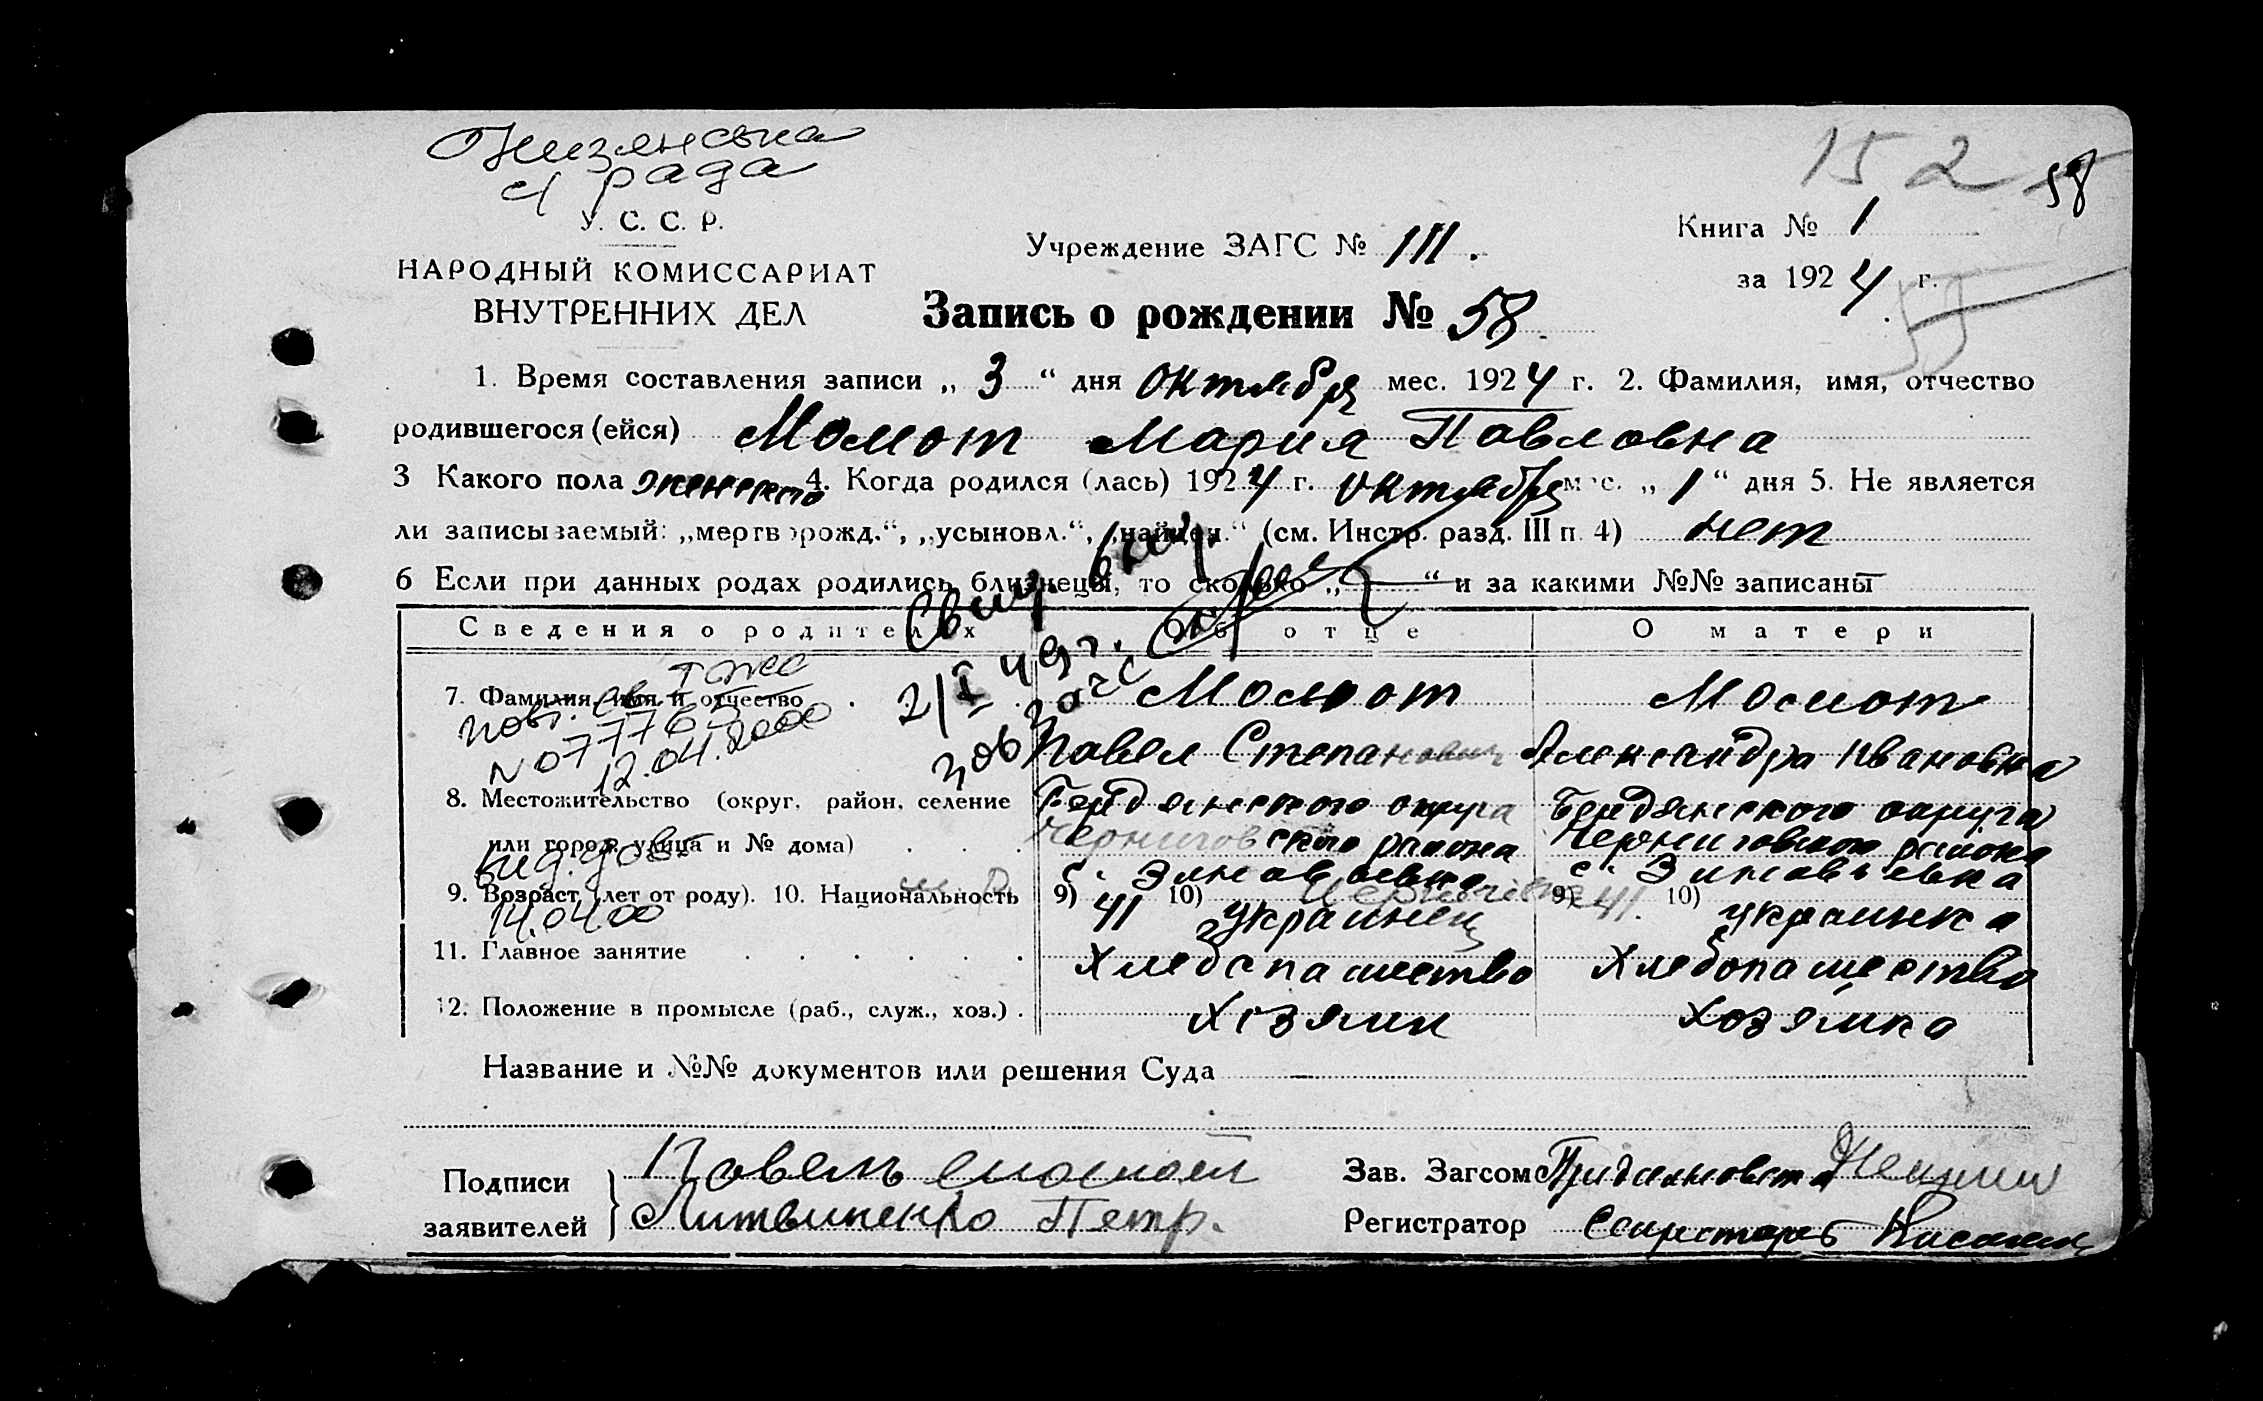 рада
152
58
У. С. С. Р.
НАРОДНЫЙ КОМИССАРИАТ
ВНУТРЕННИХ ДЕЛ
Учреждение ЗАГС № III.
Книга № 1
за 1924 г.
55
Запись о рождении № 58.
1. Время составления записи „ 3 “ дня октября мес. 1924 г. 2. Фамилия, имя, отчество
родившегося (ейся) Момот Мария Павловна
3 Какого пола женского 4. Когда родился (лась) 1924 г. октября мес. „ 1 “ дня 5. Не является
ли записываемый: „мертворожд.“, „усыновл.“, „найден.“ (см. Инстр. разд. III п. 4) нет
6 Если при данных родах родились близнецы, то сколько „ — “ и за какими №№ записаны
Свид. выд.
2/I 49 г.
Сведения о родителях Об отце О матери
7. Фамилия, имя и отчество . . . Момот Момот
Павел Степанович Александра Ивановна
тоже
повт. св.
N 077765
12.04.2000
8. Местожительство (округ, район, селение Бердянского округа Бердянского округа
или город, улица и № дома) . . . Черниговского района Черниговского района
с. Зиновьевка с. Зиновьевка
вид. дов.
14.04.00
9. Возраст (лет от роду). 10. Национальность 9) 41 10) украинец 9) 41. 10) украинка
11. Главное занятие . . . . . . Хлебопашество Хлебопашество
12. Положение в промысле (раб., служ., хоз.) . Хозяин Хозяйка
Название и №№ документов или решения Суда —
Подписи заявителей } Павел Момот
Литвиненко Петр.
Зав. Загсом
Регистратор Секретарь